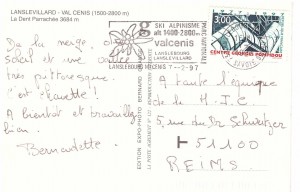 LANSLEVILLARD - VAL CENIS (1500-2800 m)
La Dent Parrachée 3684 m
SKI ALPINISME
alt 1400-2800 m
valcenis
LANSLEBOURG
LANSLEVILLARD
PARC NATIONAL
LANSLEBOURG MT CENIS
7-2-97
3,00
CENTRE GEORGES POMPIDOU
De la neige, 
soleil et une station
très pittoresque.
c'est chouette!
A bientôt et travaillez
bien.
Bernadette.
EDITION EXPO-PHOTO BERNARD
A toute l'équipe
de la M.J.C.
5, rue du Dr Schweitzer
51100
REIMS.